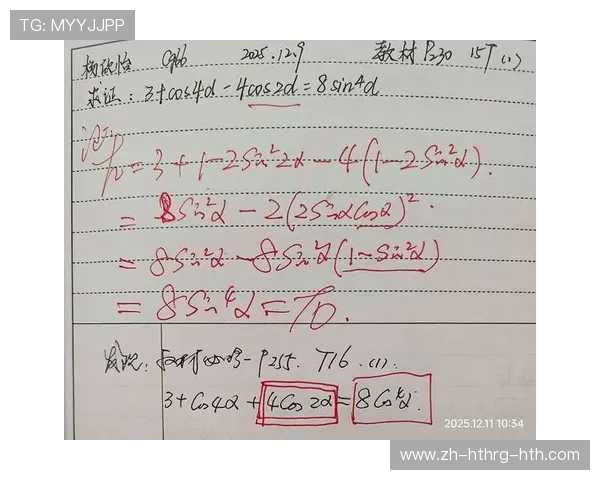 TG: MYYJJPP
杨欣怡 2025.12.9 教材 P230 15T (1)
求证: 3+cos4α - 4cos2α = 8sin⁴α
证:
左=3+1-2Sin²2α-4(1-2Sin²α).
= 8Sin²α - 2(2SinαCosα)².
= 8Sin²α - 8Sin²α(1-Sin²α)
= 8Sin⁴α = 右.
P255. T16. (1).
3+Cos4α + 4Cos2α = 8Cos⁴α.
2025.12.11 10:34
www.zh-hthrg-hth.com